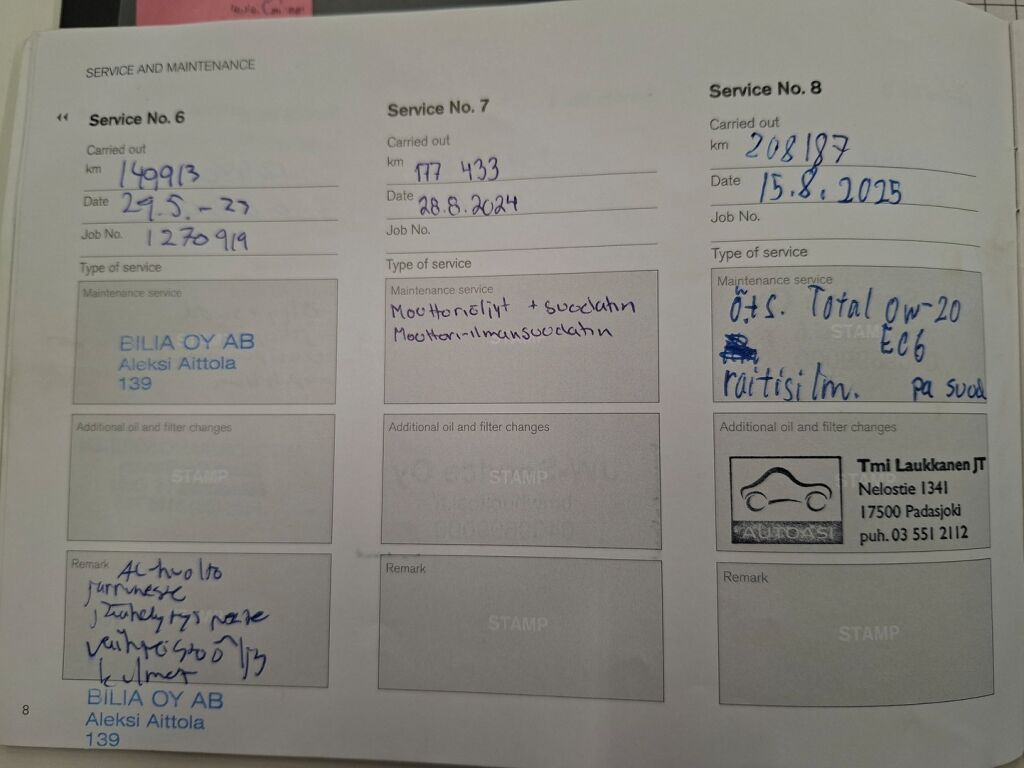 SERVICE AND MAINTENANCE
Service No. 6
Carried out
km 149913
Date 29.5.-23
Job No. 1270919
Type of service
Maintenance service
BILIA OY AB
Aleksi Aittola
139
Additional oil and filter changes
STAMP
Remark AC-huolto
jarruneste
jäähdytys neste
vaihteistoöljy
kulmat
BILIA OY AB
Aleksi Aittola
139
8
Service No. 7
Carried out
km 177 433
Date 28.8.2024
Job No.
Type of service
Maintenance service
Moottoriöljyt + suodatin
Moottori-ilmansuodatin
Additional oil and filter changes
STAMP
Remark
STAMP
Service No. 8
Carried out
km 208187
Date 15.8.2025
Job No.
Type of service
Maintenance service
ö.ts. Total 0w-20
EC6
raitisilm. pa suod
Additional oil and filter changes
AUTOASI
Tmi Laukkanen JT
Nelostie 1341
17500 Padasjoki
puh. 03 551 2112
Remark
STAMP